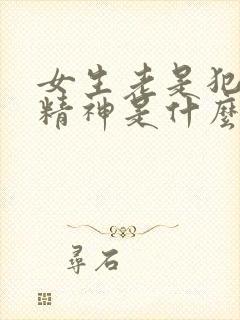 女生老是犯
精神是什麼
尋石